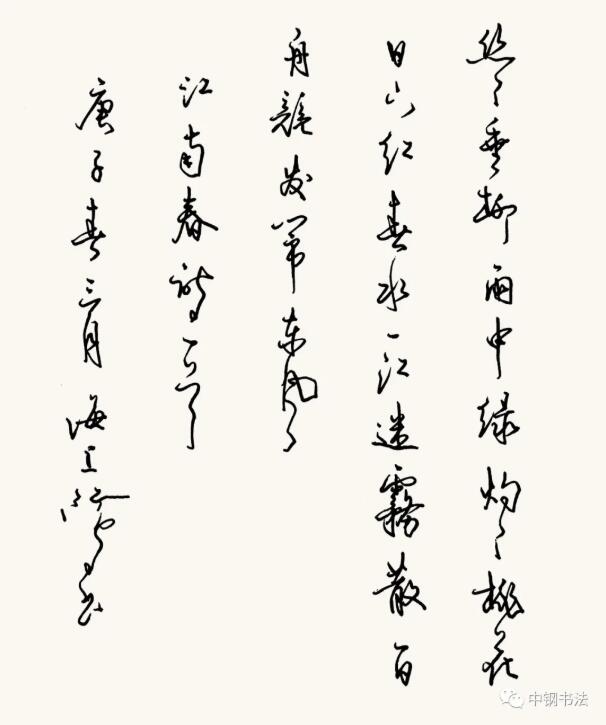 丝丝垂柳雨中绿灼灼桃花
日下红春水一江迷雾散百
舟竞发东风
江南春诗一首
庚子春三月海上书
中钢书法